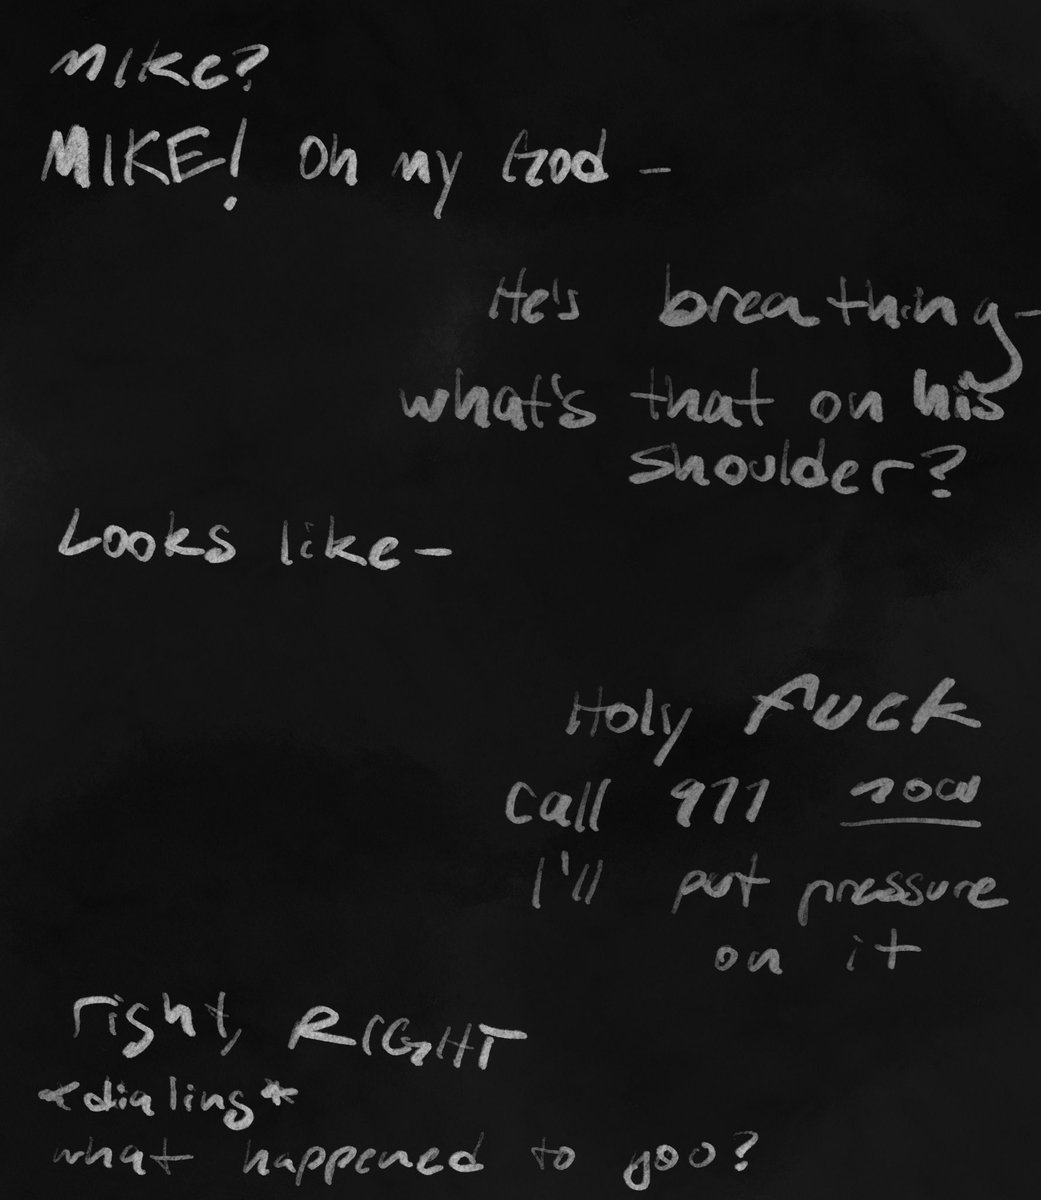 Mike?
MIKE! Oh my God –
He's breathing –
what's that on his
shoulder?
Looks like –
Holy FUCK
Call 911 now
I'll put pressure
on it
right, RIGHT
*dialing*
what happened to you?